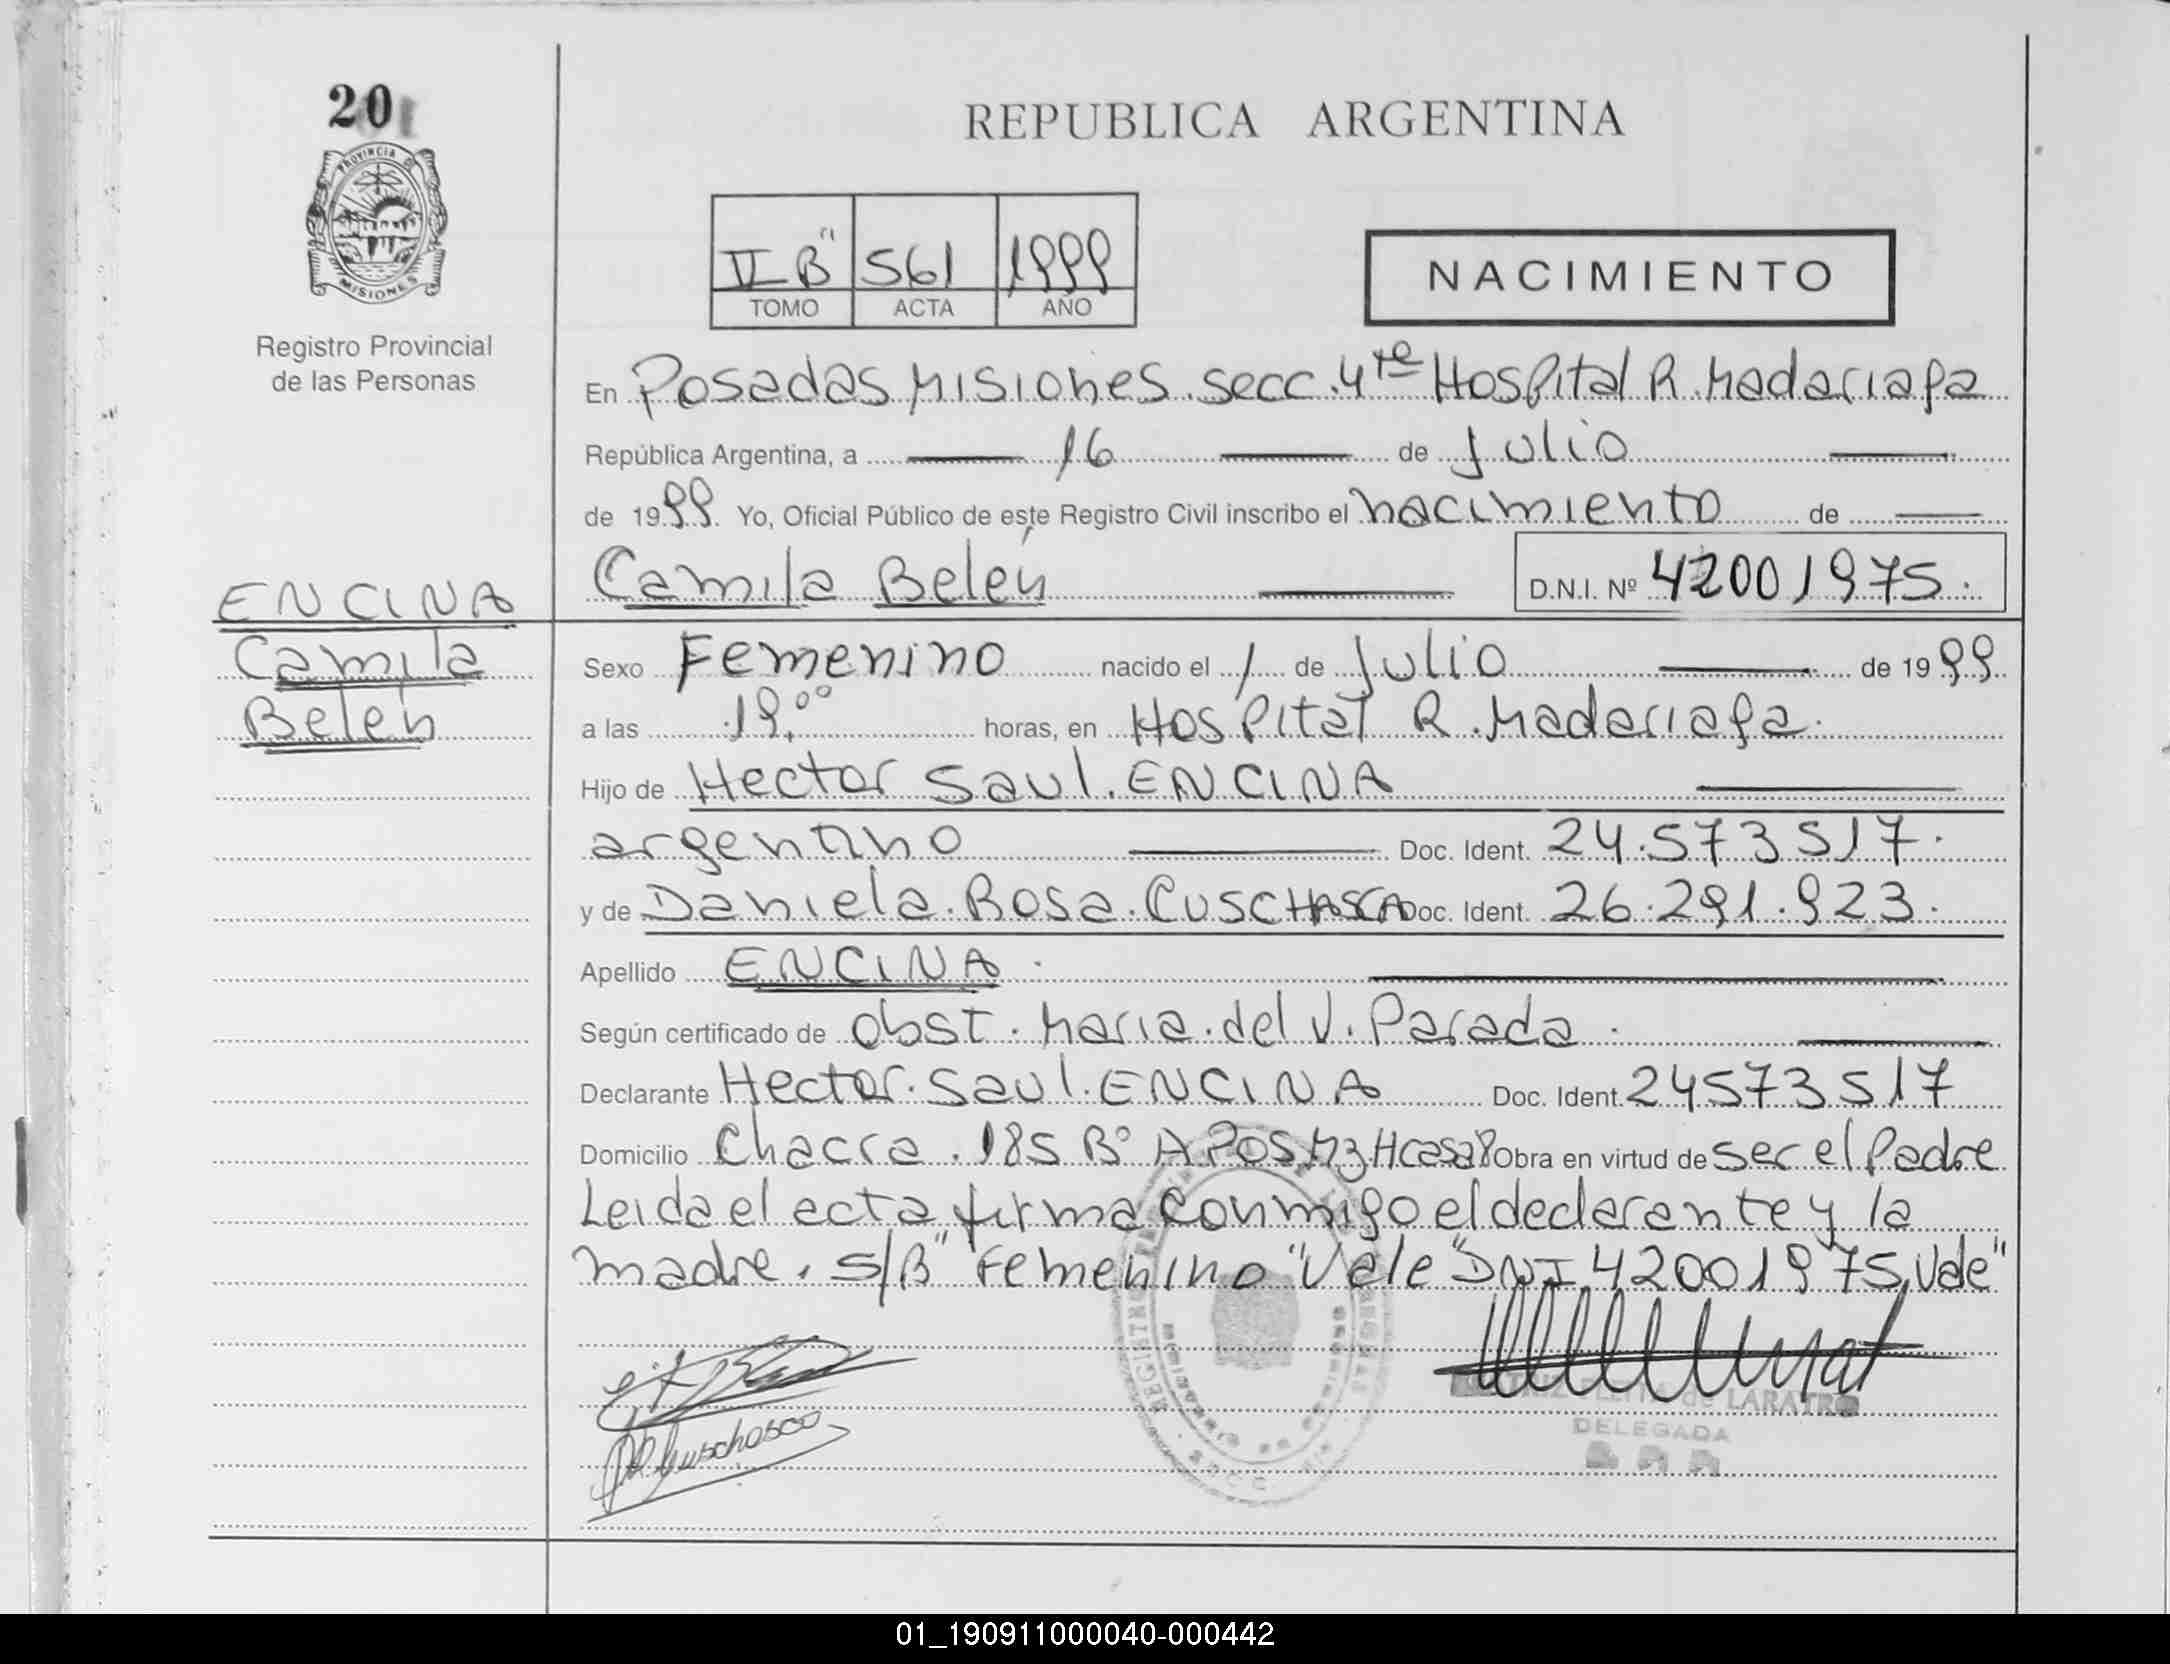 201
PROVINCIA DE
MISIONES
Registro Provincial
de las Personas
REPUBLICA ARGENTINA
II B" 561 1999
TOMO ACTA AÑO
NACIMIENTO
En Posadas Misiones. secc. 4ta Hospital R. Madariaga
República Argentina, a 16 de Julio
de 1999. Yo, Oficial Público de este Registro Civil inscribo el nacimiento de
Camila Belén D.N.I. Nº 42001975.
ENCINA
Camila
Belén
Sexo Femenino nacido el 1 de Julio de 1999
a las 19.00 horas, en Hospital R. Madariaga.
Hijo de Hector Saul. ENCINA
argentino Doc. Ident. 24.573517.
y de Daniela. Rosa. CUSCHASCA Doc. Ident. 26.291.923.
Apellido ENCINA.
Según certificado de obst. Maria. del V. Parada.
Declarante Hector. Saul. ENCINA Doc. Ident. 24573517
Domicilio Chacra. 185 Bº A POS Mz H casa 8 Obra en virtud de ser el Padre
Leida el acta firma conmigo el declarante y la
madre. S/B" Femenino "Vale" DNI 42001975, Vale"
LARATRO
DELEGADA
01_190911000040-000442